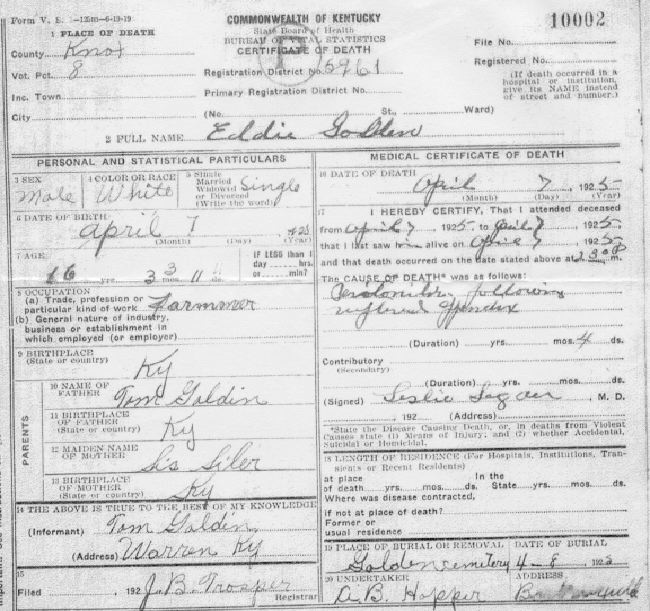 Form V. S. 1-125m-6-19-19
COMMONWEALTH OF KENTUCKY
State Board of Health
BUREAU OF VITAL STATISTICS
CERTIFICATE OF DEATH
10002
1 PLACE OF DEATH
County Knox
Vot. Pct. 8
Inc. Town
City
Registration District No. 5961
Primary Registration District No.
(No. St., Ward)
File No.
Registered No.
(If death occurred in a
hospital or institution,
give its NAME instead
of street and number.)
2 FULL NAME Eddie Golden
PERSONAL AND STATISTICAL PARTICULARS
3 SEX
Male
4 COLOR OR RACE
White
5 Single
Married
Widowed
or Divorced
(Write the word)
Single
6 DATE OF BIRTH
April 7
(Month) (Day) (Year)
7 AGE
16 yrs. 3 mos. 11 ds.
IF LESS than 1
day hrs.
or min?
8 OCCUPATION
(a) Trade, profession or
particular kind of work Farmmer
(b) General nature of industry,
business or establishment in
which employed (or employer)
9 BIRTHPLACE
(State or country)
Ky
PARENTS
10 NAME OF
FATHER
Tom Goldin
11 BIRTHPLACE
OF FATHER
(State or country)
Ky
12 MAIDEN NAME
OF MOTHER
Lis Siler
13 BIRTHPLACE
OF MOTHER
(State or country)
Ky
14 THE ABOVE IS TRUE TO THE BEST OF MY KNOWLEDGE
(Informant) Tom Goldin
(Address) Warren Ky
15
Filed , 192 J. B. Trosper
Registrar
MEDICAL CERTIFICATE OF DEATH
16 DATE OF DEATH
April 7 1925
(Month) (Day) (Year)
17 I HEREBY CERTIFY, That I attended deceased
from April 7 1925 to April 7 1925
that I last saw h alive on April 7 1925
and that death occurred on the date stated above at m.
The CAUSE OF DEATH* was as follows:
following
Appendix
(Duration) yrs. mos. 4 ds.
Contributory
(Secondary)
(Duration) yrs. mos. ds.
(Signed) Leslie Logan M. D.
, 192 (Address)
*State the Disease Causing Death, or, in deaths from Violent
Causes state (1) Means of Injury; and (2) whether Accidental,
Suicidal or Homicidal.
18 LENGTH OF RESIDENCE (For Hospitals, Institutions, Tran-
sients or Recent Residents)
at place In the
of death yrs. mos. ds. State yrs. mos. ds.
Where was disease contracted,
if not at place of death?
Former or
usual residence
19 PLACE OF BURIAL OR REMOVAL DATE OF BURIAL
Golden cemitery 4-8 1925
20 UNDERTAKER ADDRESS
A. B. Hopper